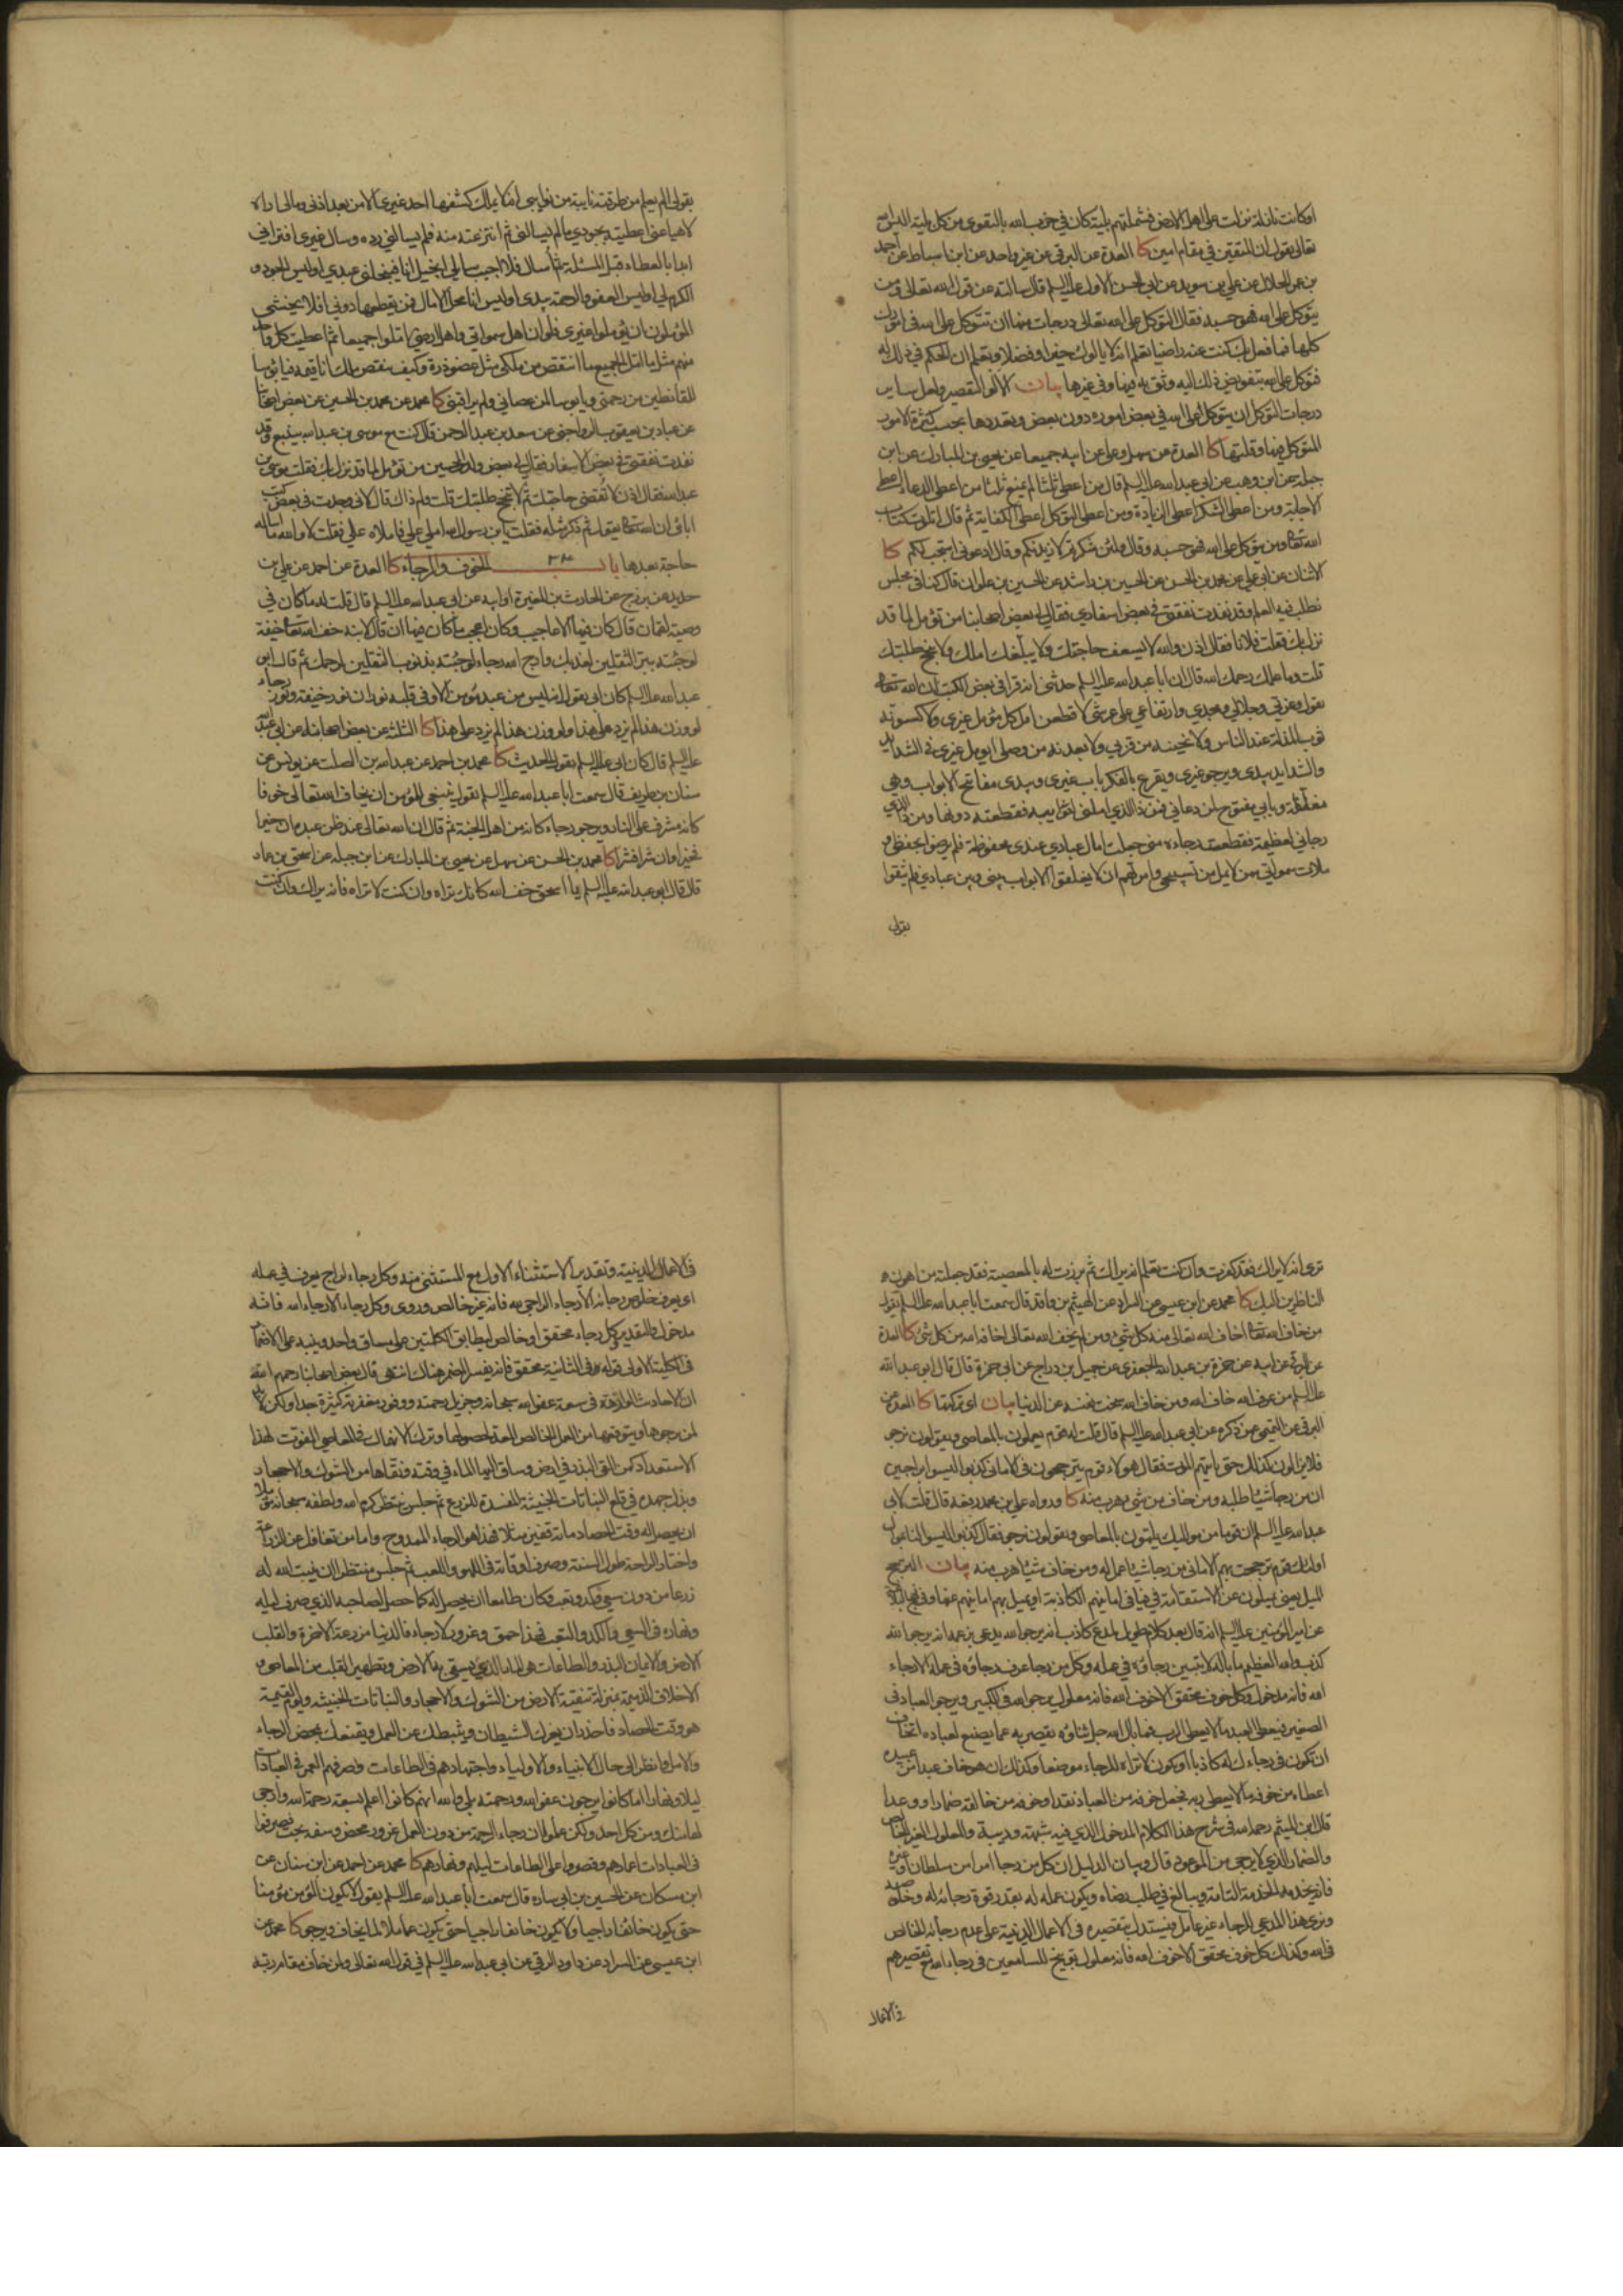 اوكانت نازلة نزلت على اهل الارض فشملتهم بلية كان في حزب الله بالتقوى من كل بلية اليس الله
تعالى يقول ان المتقين في مقام امين كا العدة عن البرقي عن غير واحد عن ابن اسباط عن احمد
بن عمر الحلال عن علي بن سويد عن ابي الحسن الاول عليه السلم قال سالته عن قول الله تعالى ومن
يتوكل على الله فهو حسبه فقال التوكل على الله تعالى درجات منها ان تتوكل على الله في امورك
كلها فما فعل بك كنت عنه راضيا تعلم انه لا يالوك خيرا وفضلا وتعلم ان الحكم في ذلك له
فتوكل على الله بتفويض ذلك اليه وثق به فيها وفي غيرها بيان الالو التقصير ولعل ساير
درجات التوكل ان يتوكل على الله في بعض اموره دون بعض وتعددها بحسب كثرة الامور
المتوكل فيها وقلتها كا العدة عن سهل وعلي عن ابيه جميعا عن يحيى بن المبارك عن ابن
جبلة عن ابن وهب عن ابي عبد الله عليه السلم قال من اعطي ثلثا لم يمنع ثلثا من اعطي الدعاء اعطي
الاجابة ومن اعطي الشكر اعطي الزيادة ومن اعطي التوكل اعطي الكفاية ثم قال اتلوت كتاب
الله تعالى ومن يتوكل على الله فهو حسبه وقال ولئن شكرتم لازيدنكم وقال ادعوني استجب لكم كا
الاثنان عن ابي علي عن محمد بن الحسن عن الحسين بن راشد عن الحسين بن علوان قال كنا في مجلس
نطلب فيه العلم وقد نفدت نفقتي في بعض اسفاري فقال لي بعض اصحابنا من تؤمل لما قد
نزل بك فقلت فلانا فقال اذن والله لا يسعف حاجتك ولا يبلغك املك ولا ينجح طلبتك
قلت وما علمك رحمك الله قال ان ابا عبد الله عليه السلم حدثني انه قرا في بعض الكتب ان الله تعالى
يقول وعزتي وجلالي ومجدي وارتفاعي على عرشي لاقطعن امل كل مؤمل غيري ولاكسونه
ثوب المذلة عند الناس ولانحينه من قربي ولابعدنه من وصلي ايومل غيري في الشدايد
والشدايد بيدي ويرجو غيري ويقرع بالفكر باب غيري وبيدي مفاتيح الابواب وهي
مغلقة وبابي مفتوح لمن دعاني فمن ذا الذي املني لنوايبه فقطعته دونها ومن ذا الذي
رجاني لعظيمة فقطعت رجاءه مني جعلت امال عبادي عندي محفوظة فلم يرضوا بحفظي و
ملات سمواتي ممن لا يمل من تسبيحي وامرتهم ان لا يغلقوا الابواب بيني وبين عبادي فلم يثقوا
بقولي
بقولي الم يعلم من طرقته نايبة من نوايبي انه لا يملك كشفها احد غيري الا من بعد اذني فمالي اراه
لاهيا عني اعطيته بجودي ما لم يسالني ثم انتزعته منه فلم يسالني رده وسال غيري افتراني
ابدا بالعطاء قبل المسئلة ثم أسال فلا اجيب سايلي ابخيل انا فيبخلني عبدي اوليس الجود و
الكرم لي اوليس العفو والرحمة بيدي اوليس انا محل الامال فمن يقطعها دوني افلا يخشى
المؤملون ان يؤملوا غيري فلو ان اهل سمواتي واهل ارضي املوا جميعا ثم اعطيت كل واحد
منهم مثل ما امل الجميع ما انتقص من ملكي مثل عضو ذرة وكيف ينقص ملك انا قيمه فيا بؤسا
للقانطين من رحمتي ويا بؤسا لمن عصاني ولم يراقبني كا محمد عن محمد بن الحسين عن بعض اصحابنا
عن عباد بن يعقوب الرواجني عن سعد بن عبد الرحمن قال كنت مع موسى بن عبد الله بينبع وقد
نفدت نفقتي في بعض الاسفار فقال لي بعض ولد الحسين من تؤمل لما قد نزل بك فقلت موسى بن
عبد الله فقال اذن لا تُقضى حاجتك ثم لا تنجح طلبتك قلت ولم ذاك قال لاني وجدت في بعض كتب
ابائي ان الله تعالى يقول ثم ذكر مثله فقلت يابن رسول الله امل علي فاملاه علي فقلت لا والله ما اساله
حاجة بعدها باب ٣٤ الخوف والرجاء كا العدة عن احمد عن علي بن
حديد عن بزرج عن الحارث بن المغيرة او ابيه عن ابي عبد الله عليه السلم قال قلت له ما كان في
وصية لقمان قال كان فيها الاعاجيب وكان اعجب ما كان فيها ان قال لابنه خف الله تعالى خيفة
لو جئته ببر الثقلين لعذبك وارج الله رجاء لو جئته بذنوب الثقلين لرحمك ثم قال ابو
عبد الله عليه السلم كان ابي يقول انه ليس من عبد مؤمن الا وفي قلبه نوران نور خيفة ونور رجاء
لو وزن هذا لم يزد على هذا ولو وزن هذا لم يزد على هذا كا الثلثة عن بعض اصحابنا عن ابي عبد الله
عليه السلم قال كان ابي عليه السلم يقول الحديث كا محمد بن احمد عن عبد الله بن الصلت عن يونس عن
سنان بن طريف قال سمعت ابا عبد الله عليه السلم يقول ينبغي للمؤمن ان يخاف الله تعالى خوفا
كانه مشرف على النار ويرجوه رجاء كانه من اهل الجنة ثم قال ان الله تعالى عند ظن عبده ان خيرا
فخيرا وان شرا فشرا كا محمد بن الحسن عن سهل عن يحيى بن المبارك عن ابن جبلة عن اسحق بن عمار
قال قال ابو عبد الله عليه السلم يا اسحق خف الله كانك تراه وان كنت لا تراه فانه يراك وان كنت
ترى انه لا يراك فقد كفرت وان كنت تعلم انه يراك ثم برزت له بالمعصية فقد جعلته من اهون
الناظرين اليك كا محمد عن ابن عيسى عن السراد عن الهيثم بن واقد قال سمعت ابا عبد الله عليه السلم يقول
من خاف الله تعالى اخاف الله تعالى منه كل شيء ومن لم يخف الله تعالى اخافه الله من كل شئ كا العدة
عن البرقي عن ابيه عن حمزة بن عبد الله الجعفري عن جميل بن دراج عن ابي حمزة قال قال ابو عبد الله
عليه السلم من عرف الله خاف الله ومن خاف الله سخت نفسه عن الدنيا بيان اي تركتها كا العدة عن
البرقي عن التميمي عن ذكره عن ابي عبد الله عليه السلم قال قلت له قوم يعملون بالمعاصي ويقولون نرجو
فلا يزالون كذلك حتى ياتيهم الموت فقال هؤلاء قوم يترجحون في الاماني كذبوا ليسوا براجين
ان من رجا شيئا طلبه ومن خاف من شئ هرب منه كا ورواه علي بن محمد رفعه قال قلت لابي
عبد الله عليه السلم ان قوما من مواليك يلمون بالمعاصي ويقولون نرجو فقال كذبوا ليسوا لنا بموال
اولئك قوم ترجحت بهم الاماني من رجا شيئا عمل له ومن خاف شيئا هرب منه بيان الترجح
الميل يعني يميلون عن الاستقامة في فيافي امانيهم الكاذبة او يميل بهم امانيهم عنها وفي نهج البلاغة
عن امير المؤمنين عليه السلم انه قال بعد كلام طويل لمدع كاذب انه يرجو الله يدعي بزعمه انه يرجو الله
كذب والله العظيم ما باله لا يتبين رجاؤه في عمله وكل من رجا عرف رجاؤه في عمله الا رجاء
الله فانه مدخول وكل خوف محقق الا خوف الله فانه معلول يرجو الله في الكبير ويرجو العباد في
الصغير فيعطي العبد ما لا يعطي الرب فما بال الله جل ثناؤه يقصر به عما يصنع لعباده اتخاف
ان تكون في رجاءك له كاذبا او يكون لا تراه للرجاء موضعا وكذلك ان هو خاف عبدا من عبيده
اعطاه من خوفه ما لا يعطي ربه فجعل خوفه من العباد نقدا وخوفه من خالقه ضمارا ووعدا
قال ابن الميثم رحمه الله في شرح هذا الكلام المدخول الذي فيه شبهة وريبة والمعلول الغير الخالص
والضمار الذي لا يرجى من الموعود قال وبيان الدليل ان كل من رجا امرا من سلطان او غيره
فانه يخدمه الخدمة التامة ويبالغ في طلب رضاه ويكون عمله له بقدر قوة رجائه له وخلوصه
ونرى هذا المدعي للرجاء غير عامل فيستدل بتقصيره في الاعمال الدينية على عدم رجائه الخالص
في الله وكذلك كل خوف محقق الا خوف الله فانه معلول توبيخ للسامعين في رجاء الله مع تقصيرهم
في الاعمال
في الاعمال الدينية وتقدير الاستثناء الاول مع المستثنى منه وكل رجاء لراج يعرف في عمله
اي يعرف خلوص رجائه الا رجاء الراجي لله فانه غير خالص وروي وكل رجاء الا رجاء الله فانه
مدخول والتقدير كل رجاء محقق او خالص ليطابق الكلمتين على مساق واحد وينبه على الاضمار
في الكلية الاولى قوله في الثانية محقق فانه يفسر المضمر هناك انتهى قال بعض اصحابنا رحمهم الله
ان الاحاديث الواردة في سعة عفو الله سبحانه وجزيل رحمته ووفور مغفرته كثيرة جدا ولكن لا بد
لمن يرجوها ويتوقعها من العمل الخالص المعد لحصولها وترك الانهماك في المعاصي المفوت لهذا
الاستعداد كمن القى البذر في ارض وساق اليها الماء في وقته ونقاها من الشوك والاحجار
وبذل جهده في قلع النباتات الخبيثة المفسدة للزرع ثم جلس ينتظر كرم الله ولطفه سبحانه مؤملا
ان يحصل له وقت الحصاد مائة قفيز مثلا فهذا هو الرجاء الممدوح واما من تغافل عن الزراعة
واختار الراحة طول السنة وصرف اوقاته في اللهو واللعب ثم جلس منتظرا ان ينبت الله له
زرعا من دون سعي وكد وتعب وكان طامعا ان يحصل له كما حصل لصاحبه الذي صرف ليله
ونهاره في السعي والكد والتعب فهذا حمق وغرور لا رجاء فالدنيا مزرعة الاخرة والقلب
الارض والايمان البذر والطاعات هي الماء الذي يسقى به الارض وتطهير القلب من المعاصي و
الاخلاق الذميمة بمنزلة تنقية الارض من الشوك والاحجار والنباتات الخبيثة ويوم القيمة
هو وقت الحصاد فاحذر ان يغرك الشيطان ويثبطك عن العمل ويقنعك بمحض الرجاء
والامل وانظر الى حال الانبياء والاولياء واجتهادهم في الطاعات وصرفهم العمر في العبادات
ليلا ونهارا اما كانوا يرجون عفو الله ورحمته بلى والله انهم كانوا اعلم بسعة رحمة الله وارجى
لها منك ومن كل احد ولكن علموا ان رجاء الرحمة من دون العمل غرور محض وسفه بحت فصرفوا
في العبادات اعمارهم وقصروا على الطاعات ليلهم ونهارهم كا محمد عن احمد عن ابن سنان عن
ابن مسكان عن الحسين بن ابي ساره قال سمعت ابا عبد الله عليه السلم يقول لا يكون المؤمن مؤمنا
حتى يكون خائفا راجيا ولا يكون خائفا راجيا حتى يكون عاملا لما يخاف ويرجو كا محمد عن
ابن عيسى عن السراد عن داود الرقي عن ابي عبد الله عليه السلم في قول الله تعالى ولمن خاف مقام ربه